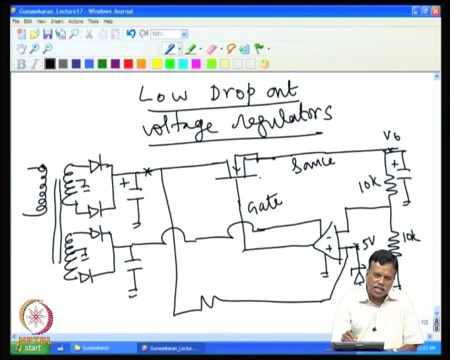 Gunasekaran_Lecture17 - Windows Journal
File Edit View Insert Actions Tools Help
100%
B I
Low Drop out
voltage regulators
Vo
Source
10k
Gate
5V
10k
NPTEL
start
Gunasekaran
Gunasekaran_Lectur...